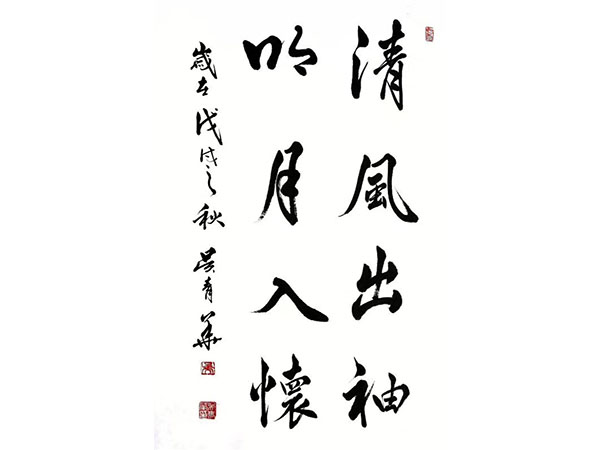 清風出袖
明月入懷
歲在戊戌之秋 吳青華